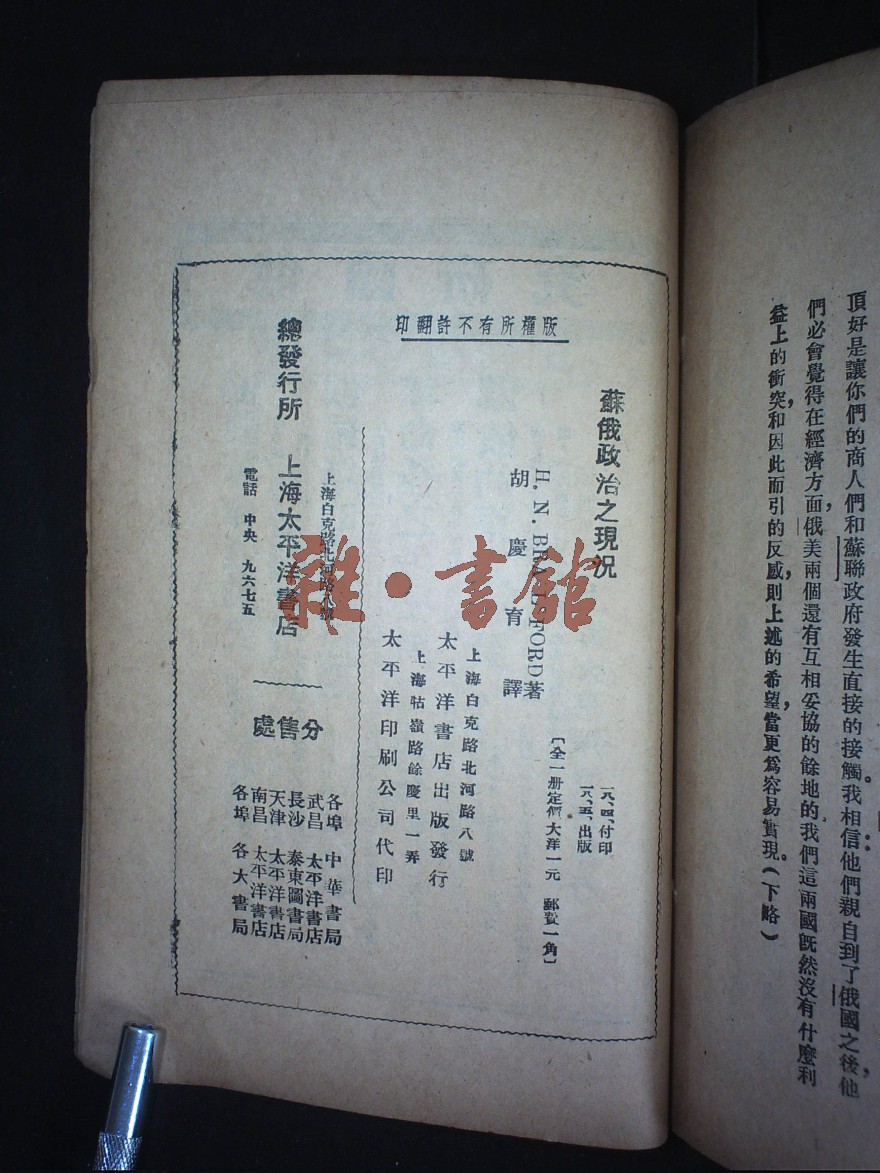 頂好是讓你們的商人們和蘇聯政府發生直接的接觸，我相信他們親自到了俄國之後，他
們必會覺得在經濟方面，俄美兩個還有互相妥協的餘地的：我們這兩國既然沒有什麼利
益上的衝突，和因此而引的反感，則上述的希望，當更爲容易實現。（下略）
版權所有不許翻印
蘇俄政治之現況
H. N. BRAILSFORD著
胡慶育譯
一八、四、付印
一八、五、出版
〔全一册定價大洋一元 郵費一角〕
上海白克路北河路八號
太平洋書店出版發行
上海牯嶺路餘慶里一弄
太平洋印刷公司代印
總發行所 上海太平洋書店
上海白克路北河路八號
電話 中央 九六七五
分售處
各埠 中華書局
武昌 太平洋書店
長沙 泰東圖書局
天津 太平洋書店
南昌 太平洋書店
各埠 各大書局
雜·書館